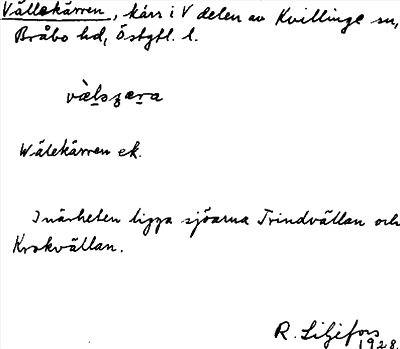 Vällekärren, kärr i V delen av Kvillinge sn,
Bråbo hd, Östgtl. l.
Wälekärren ek.
I närheten ligga sjöarna Trindvällan och
Krokvällan.
R. Liljefors
1928.